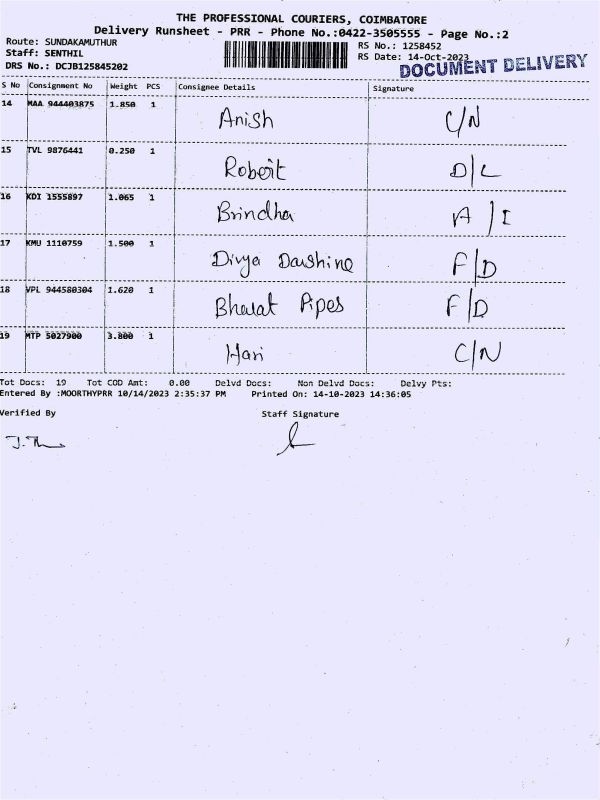 THE PROFESSIONAL COURIERS, COIMBATORE
Delivery Runsheet - PRR - Phone No.:0422-3505555 - Page No.:2
Route: SUNDAKAMUTHUR
Staff: SENTHIL
DRS No.: DCJB125845202
RS No.: 1258452
RS Date: 14-Oct-2023
DOCUMENT DELIVERY
S No Consignment No Weight PCS Consignee Details Signature
14 MAA 944403875 1.850 1 Anish C/N
15 TVL 9876441 0.250 1 Robert D/L
16 KDI 1555897 1.065 1 Brindha A/I
17 KMU 1110759 1.500 1 Divya Darshine F/D
18 VPL 944580304 1.620 1 Bharat Pipes F/D
19 MTP 5027900 3.800 1 Hari C/N
Tot Docs: 19 Tot COD Amt: 0.00 Delvd Docs: Non Delvd Docs: Delvy Pts:
Entered By :MOORTHYPRR 10/14/2023 2:35:37 PM Printed On: 14-10-2023 14:36:05
Verified By Staff Signature